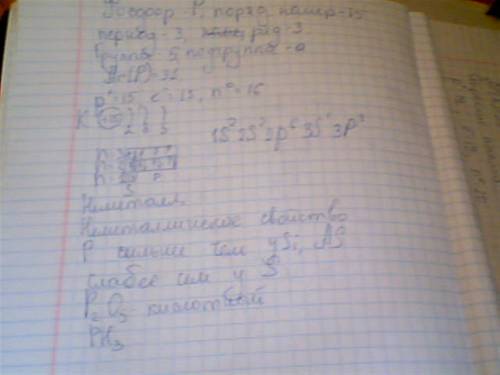 Фосфор P, поряд. номер-15
период-3, ряд-3
Группы 5, подгруппы-а
Ar(P)=32
p⁺=15, e⁻=15, n⁰=16
2 8 5
1S² 2S² 2p⁶ 3S² 3P³
S P
Неметалл.
Неметаллическое свойство
P сильнее чем у Si, AS
слабее чем у S
P₂O₅ кислотный
PH₃